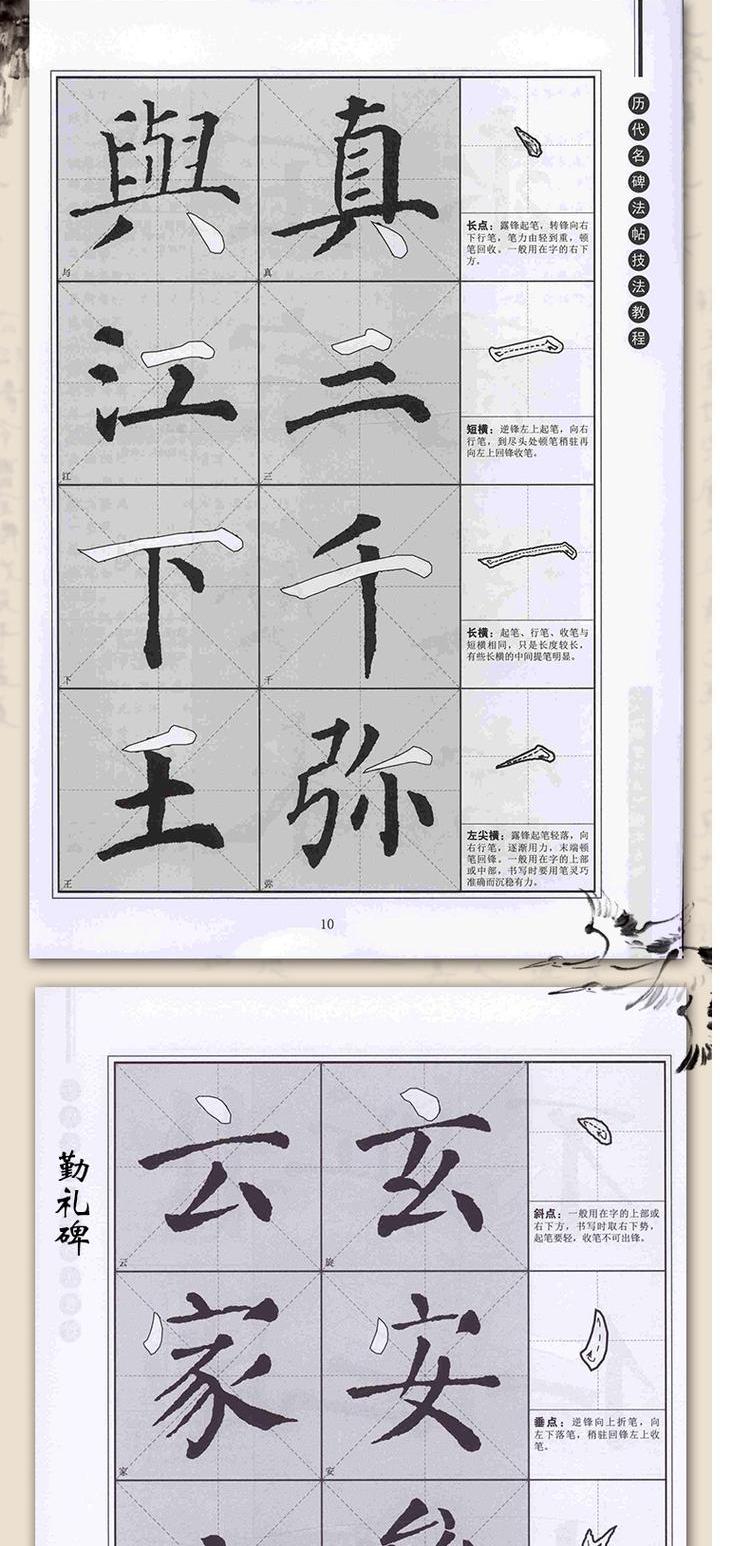 历代名碑法帖技法教程
與
真
与
真
长点：露锋起笔，转锋向右
下行笔，笔力由轻到重，顿
笔回收。一般用在字的右下
方。
江
三
江
三
短横：逆锋左上起笔，向右
行笔，到尽头处顿笔稍驻再
向左上回锋收笔。
下
千
下
千
长横：起笔、行笔、收笔与
短横相同，只是长度较长，
有些长横的中间提笔明显。
王
弥
王
弥
左尖横：露锋起笔轻落，向
右行笔，逐渐用力，末端顿
笔回锋。一般用在字的上部
或中部，书写时要用笔灵巧
准确而沉稳有力。
10
勤礼碑
云
玄
云
旋
斜点：一般用在字的上部或
右下方，书写时取右下势，
起笔要轻，收笔不可出锋。
家
安
家
安
垂点：逆锋向上折笔，向
左下落笔，稍驻回锋左上收
笔。